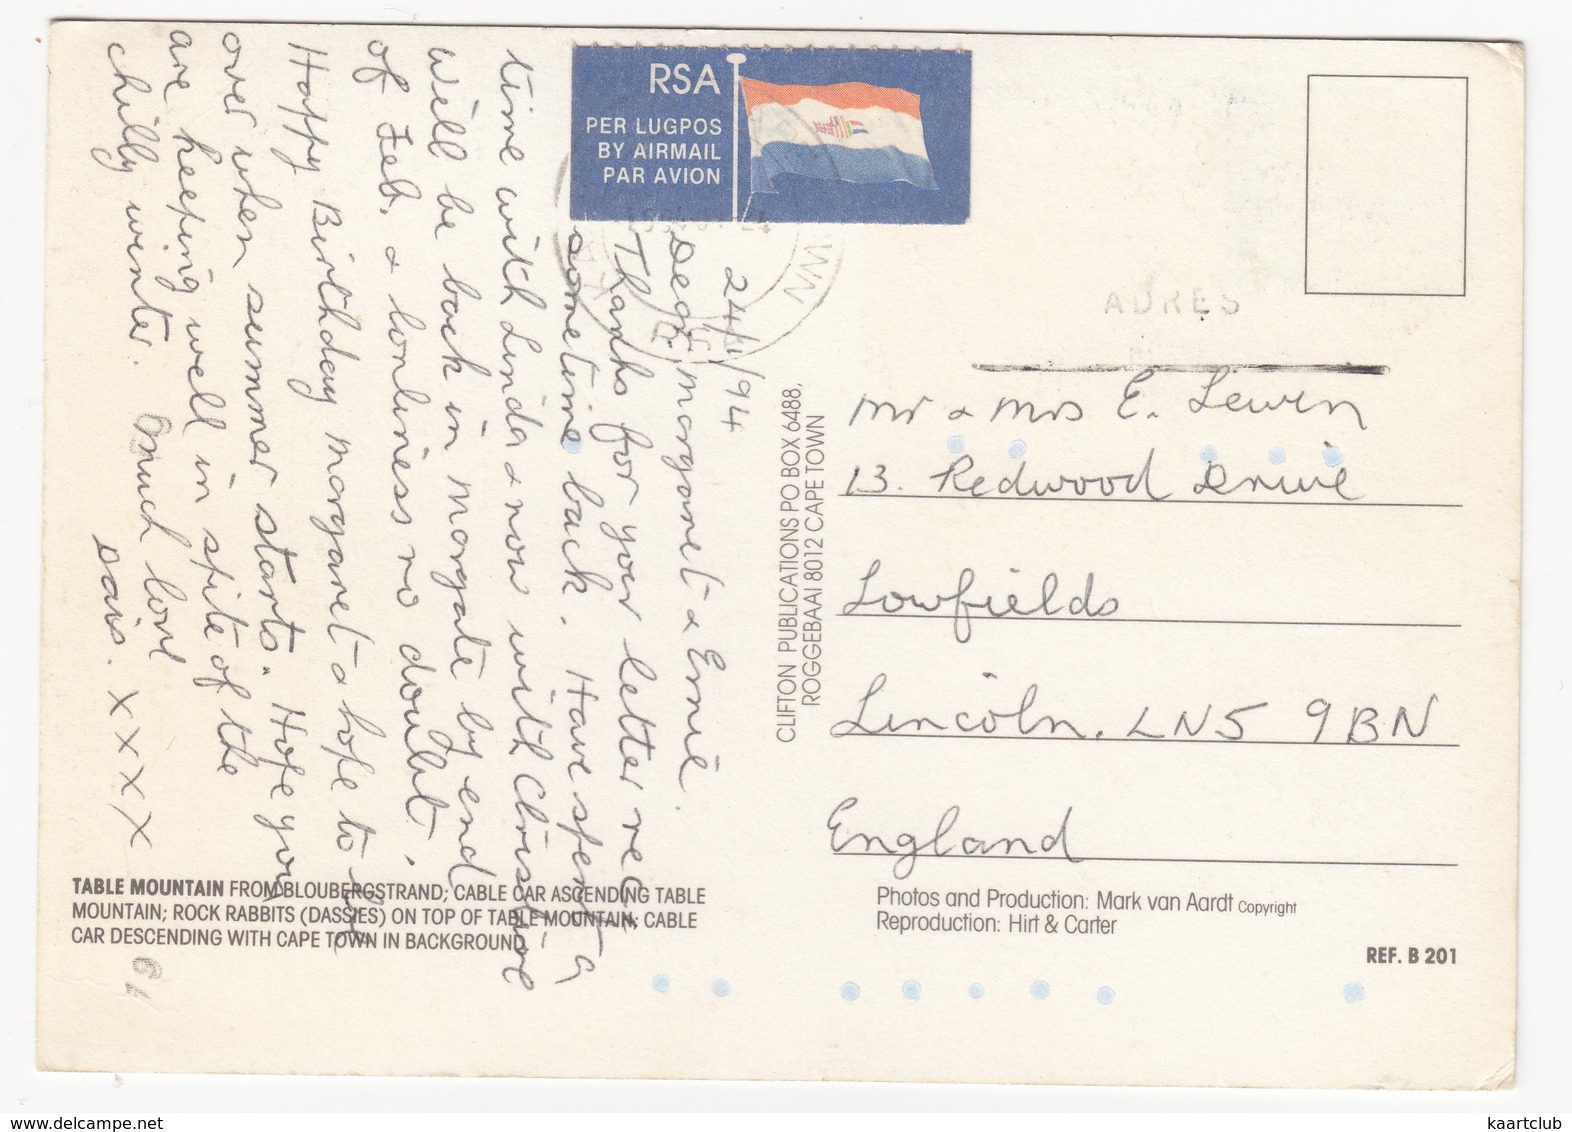 RSA
PER LUGPOS
BY AIRMAIL
PAR AVION
24/1/94
Dear Margaret & Ernie.
Thanks for your letter rec
sometime back. Have spent a
time with Linda & now with Christine
will be back in Margate by end
of Feb. & lonliness no doubt.
Happy Birthday Margaret & hope to be
over when summer starts. Hope you
are keeping well in spite of the
chilly winter. Much love
Davis. X X X X
ADRES
Mr & Mrs E. Lewin
13. Redwood Drive
Lowfields
Lincoln. LN5 9BN
England
CLIFTON PUBLICATIONS PO BOX 6488,
ROGGEBAAI 8012 CAPE TOWN
TABLE MOUNTAIN FROM BLOUBERGSTRAND; CABLE CAR ASCENDING TABLE
MOUNTAIN; ROCK RABBITS (DASSIES) ON TOP OF TABLE MOUNTAIN; CABLE
CAR DESCENDING WITH CAPE TOWN IN BACKGROUND
Photos and Production: Mark van Aardt Copyright
Reproduction: Hirt & Carter
REF. B 201
www.kaartclub